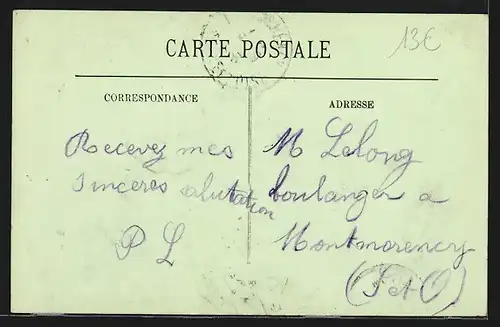 CARTE POSTALE
13€
CORRESPONDANCE
Recevez mes
sincères salutation
P L
ADRESSE
M Lelong
boulanger a
Montmorency
(S et O)